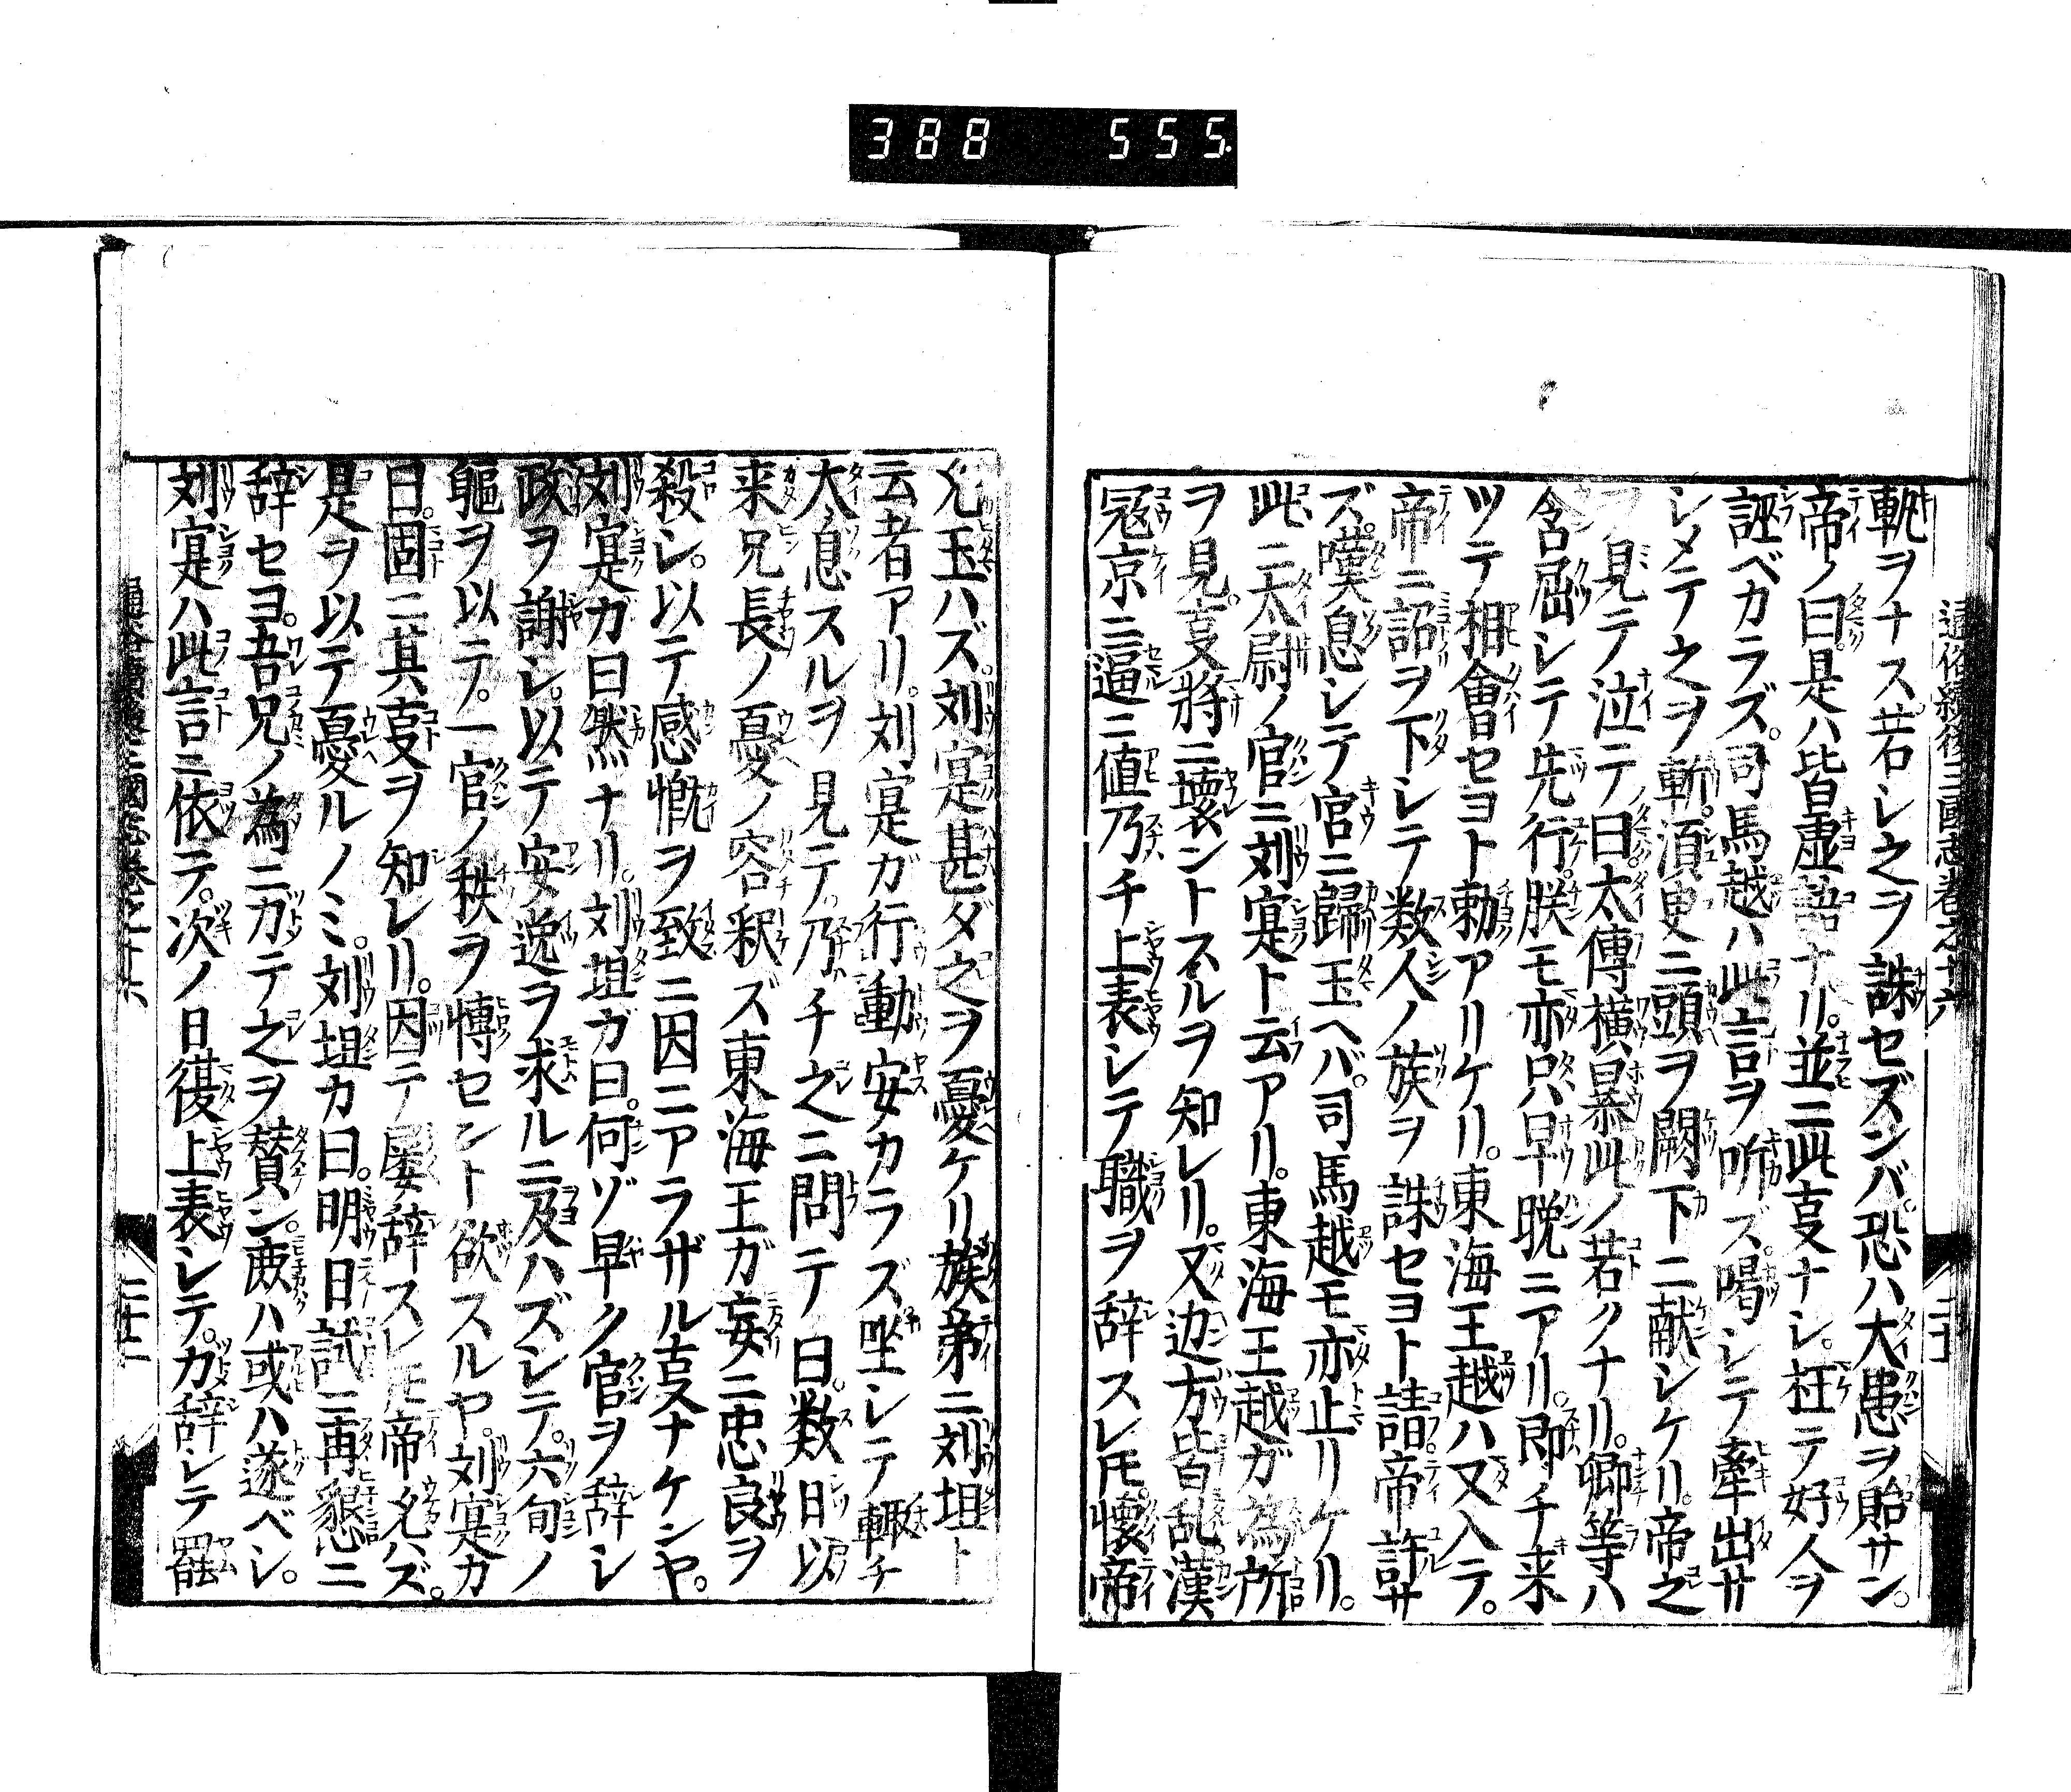 388 555.
通俗續後三國志卷之十六
軌ヲナス若シ之ヲ誅セズンバ。恐ハ大患ヲ貽サン。
帝ノ曰是ハ皆虚語ナリ。並ニ此叓ナシ。枉テ好人ヲ
誣ベカラズ。司馬越ハ此言ヲ听ズ。喝シテ牽出サ
シメテ之ヲ斬。須臾ニ頭ヲ闕下ニ献シケリ。帝之
ヲ見テ泣テ曰。太傳横暴此ノ若クナリ。卿等ハ
含屈シテ先行。朕モ亦只早晩ニアリ。即チ来
ツテ相會セヨト勅アリケリ。東海王越ハ又入テ。
帝ニ詔ヲ下シテ数人ノ族ヲ誅セヨト請。帝許サ
ズ。嘆息シテ宮ニ歸玉ヘバ。司馬越モ亦止リケリ。
此ニ太尉ノ官ニ刘寔ト云アリ。東海王越ガ為所
ヲ見。叓將ニ壊ントスルヲ知レリ。又边方皆乱漢
冦京ニ逼ニ値乃チ上表シテ職ヲ辞スレ𪜈。懐帝
允玉ハズ。刘寔甚ダ之ヲ憂ケリ族弟ニ刘坦ト
云者アリ。刘寔ガ行動安カラズ坐シテ輙チ
大息スルヲ見テ。乃チ之ニ問テ曰。数日以
来兄長ノ憂ノ容釈ズ東海王ガ妄ニ忠良ヲ
殺シ。以テ感慨ヲ致ニ因ニアラザル叓ナケンヤ。
刘寔カ曰然ナリ。刘坦ガ曰。何ゾ早ク官ヲ辞シ
政ヲ謝シ。以テ安逸ヲ求ルニ及ハズシテ。六旬ノ
軀ヲ以テ。一官ノ秩ヲ愽セント欲スルヤ。刘寔カ
曰。固ニ其叓ヲ知レリ。因テ屡辞スレ𪜈帝允ハズ。
是ヲ以テ憂ルノミ。刘坦カ曰。明日試ニ再懇ニ
辞セヨ。吾兄ノ為ニガテ之ヲ賛ン。庶ハ或ハ遂ベシ。
刘寔ハ此言ニ依テ。次ノ日復上表シテ。力辞シテ罷
二十二